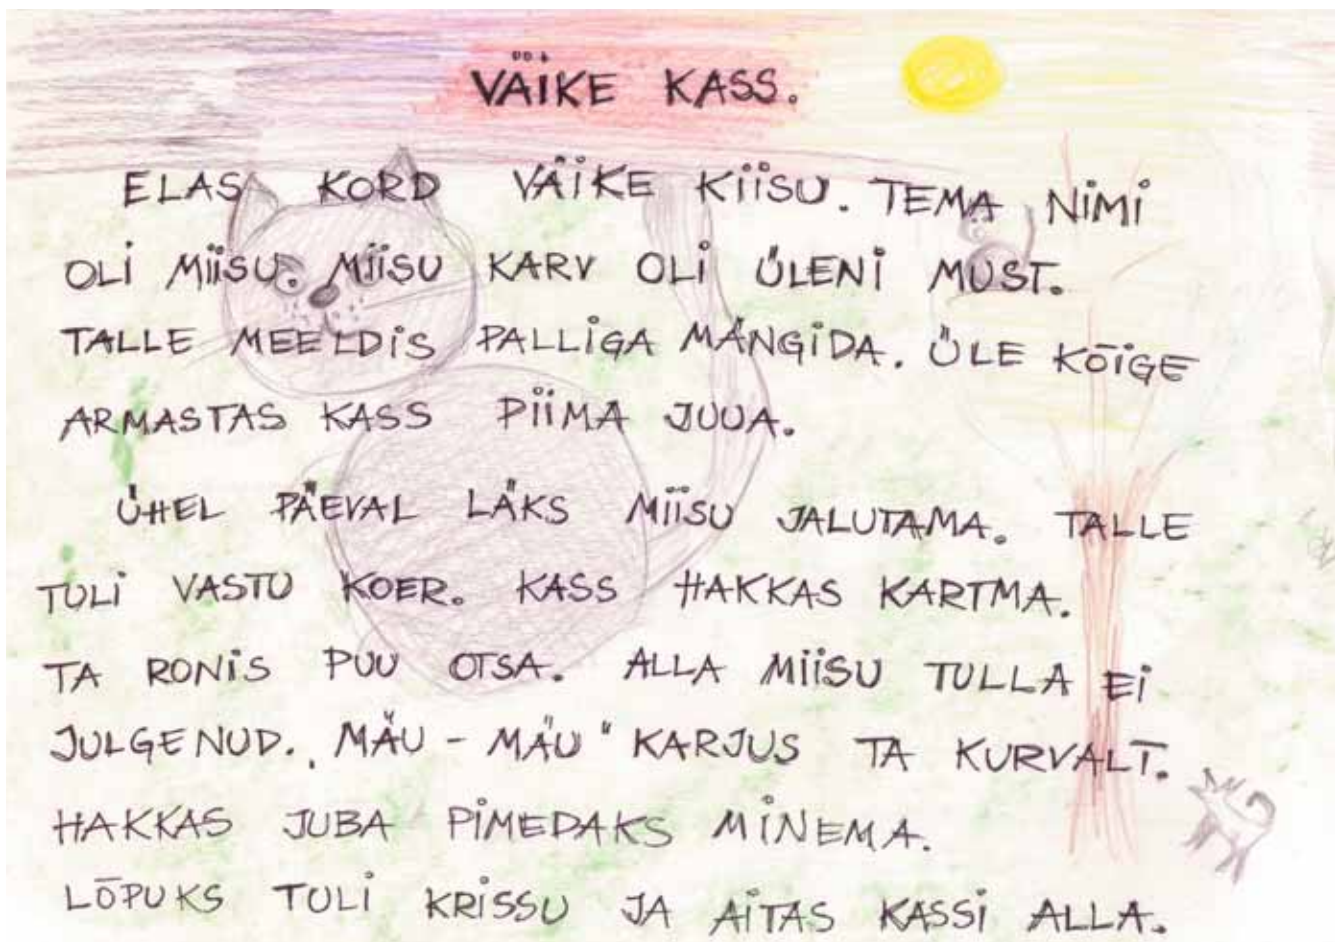 VÄIKE KASS.
ELAS KORD VÄIKE KIISU. TEMA NIMI
OLI MIISU. MIISU KARV OLI ÜLENI MUST.
TALLE MEELDIS PALLIGA MÄNGIDA. ÜLE KÕIGE
ARMASTAS KASS PIIMA JUUA.
ÜHEL PÄEVAL LÄKS MIISU JALUTAMA. TALLE
TULI VASTU KOER. KASS HAKKAS KARTMA.
TA RONIS PUU OTSA. ALLA MIISU TULLA EI
JULGENUD. „MÄU - MÄU" KARJUS TA KURVALT.
HAKKAS JUBA PIMEDAKS MINEMA.
LÕPUKS TULI KRISSU JA AITAS KASSI ALLA.